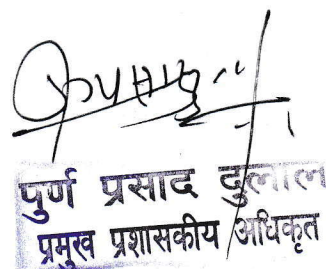 पुर्ण प्रसाद दुलाल
प्रमुख प्रशासकीय अधिकृत